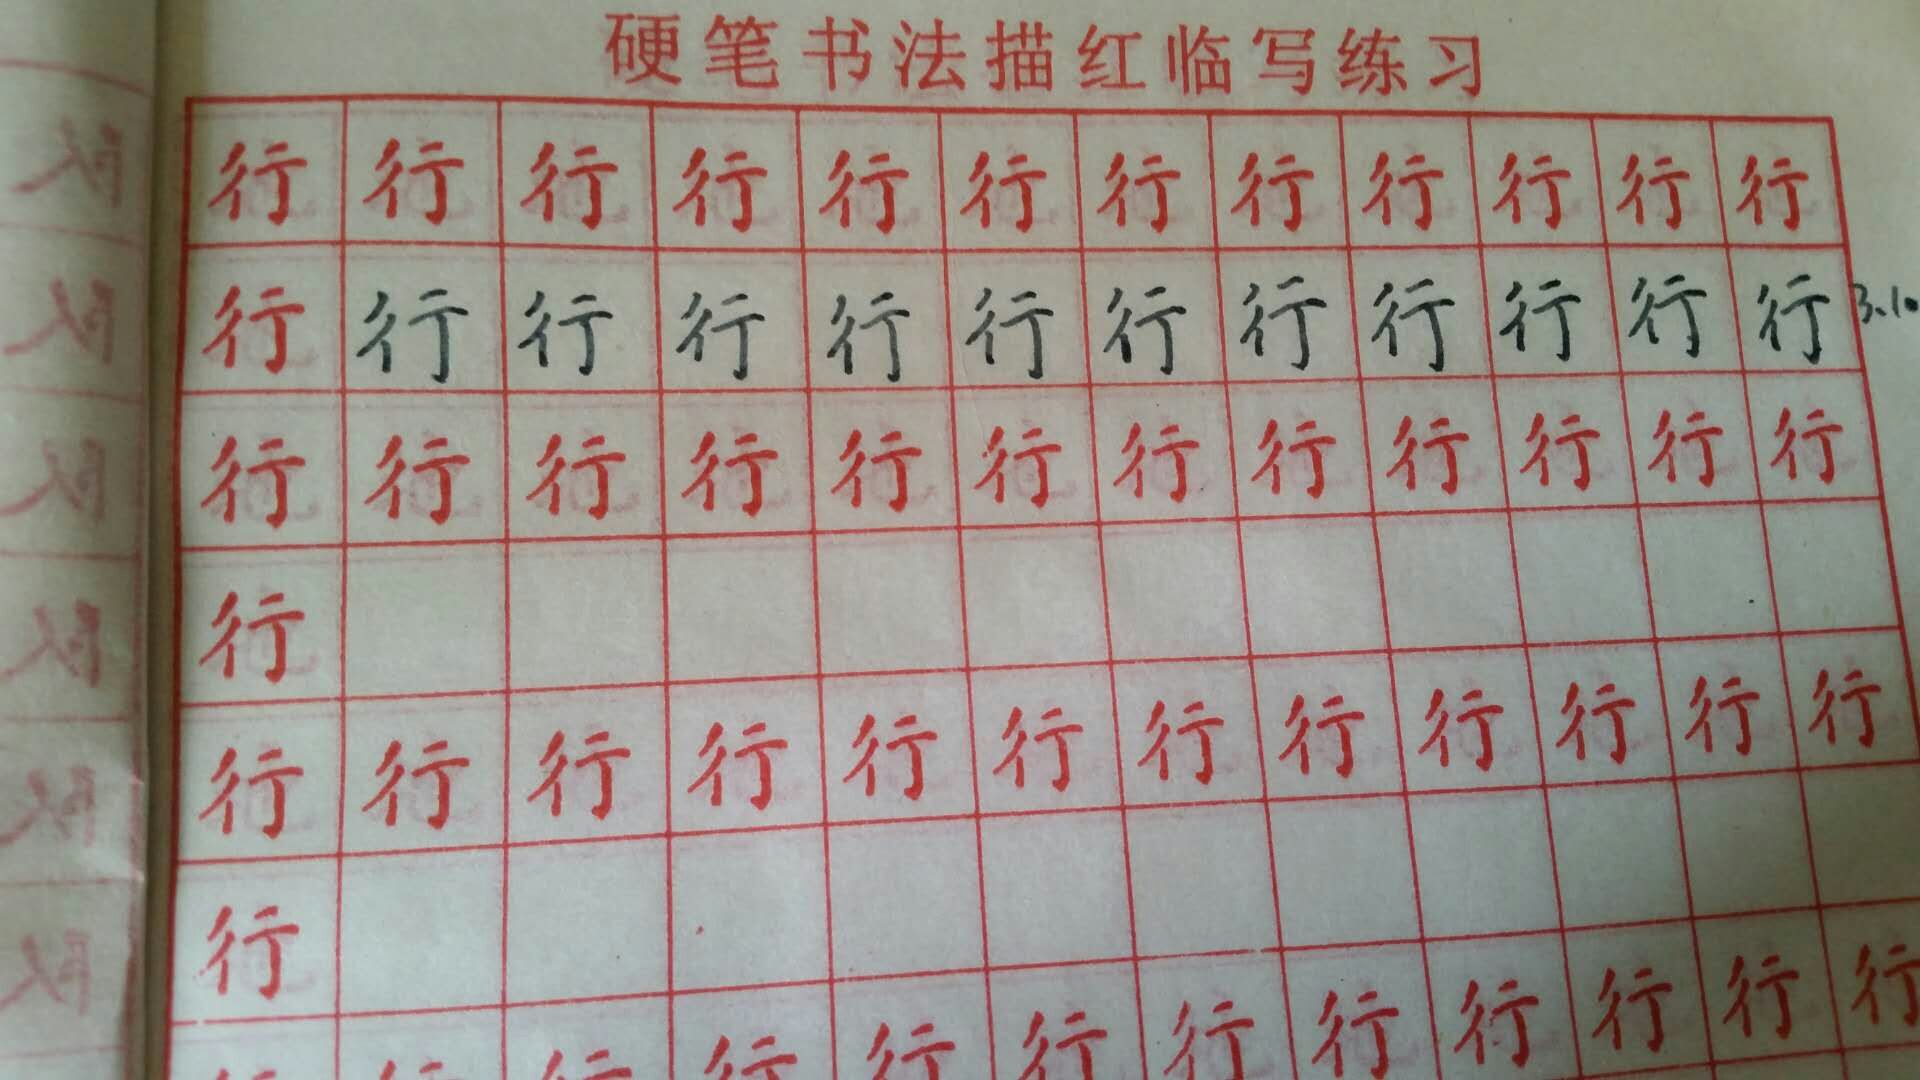 硬笔书法描红临写练习
行 行 行 行 行 行 行 行 行 行 行 行
行 行 行 行 行 行 行 行 行 行 行 行 3.10
行 行 行 行 行 行 行 行 行 行 行 行
行
行 行 行 行 行 行 行 行 行 行 行 行
行
行 行 行 行 行 行 行 行 行 行 行 行